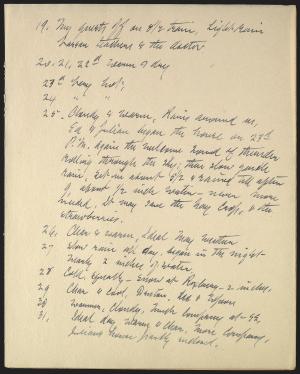 19. My guests off on 8½ train, Light rain
Lawson Stathers & the doctor
20, 21, 22nd warm & dry
23rd Very hot,
24 " "
25- Cloudy & warm, Rains around us,
Ed & Julian began the house on 23rd
P.M. again the welcome sound of thunder
rolling through the sky; then slow gentle
rain, set in about 5½ & rained till after
9, about ½ inch water - never more
needed. It may save the hay crop, & the
strawberries.
26. Clear & warm, ideal May weather
27 Slow rain all day, began in the night-
nearly 2 inches of water,
28 Cold, squally - snow at Roxbury - 2 inches,
29 Clear & cool,
30 warmer, Cloudy, Much company at-SS,
31, Ideal day warm & clear, More company,
Julians house partly inclosed.